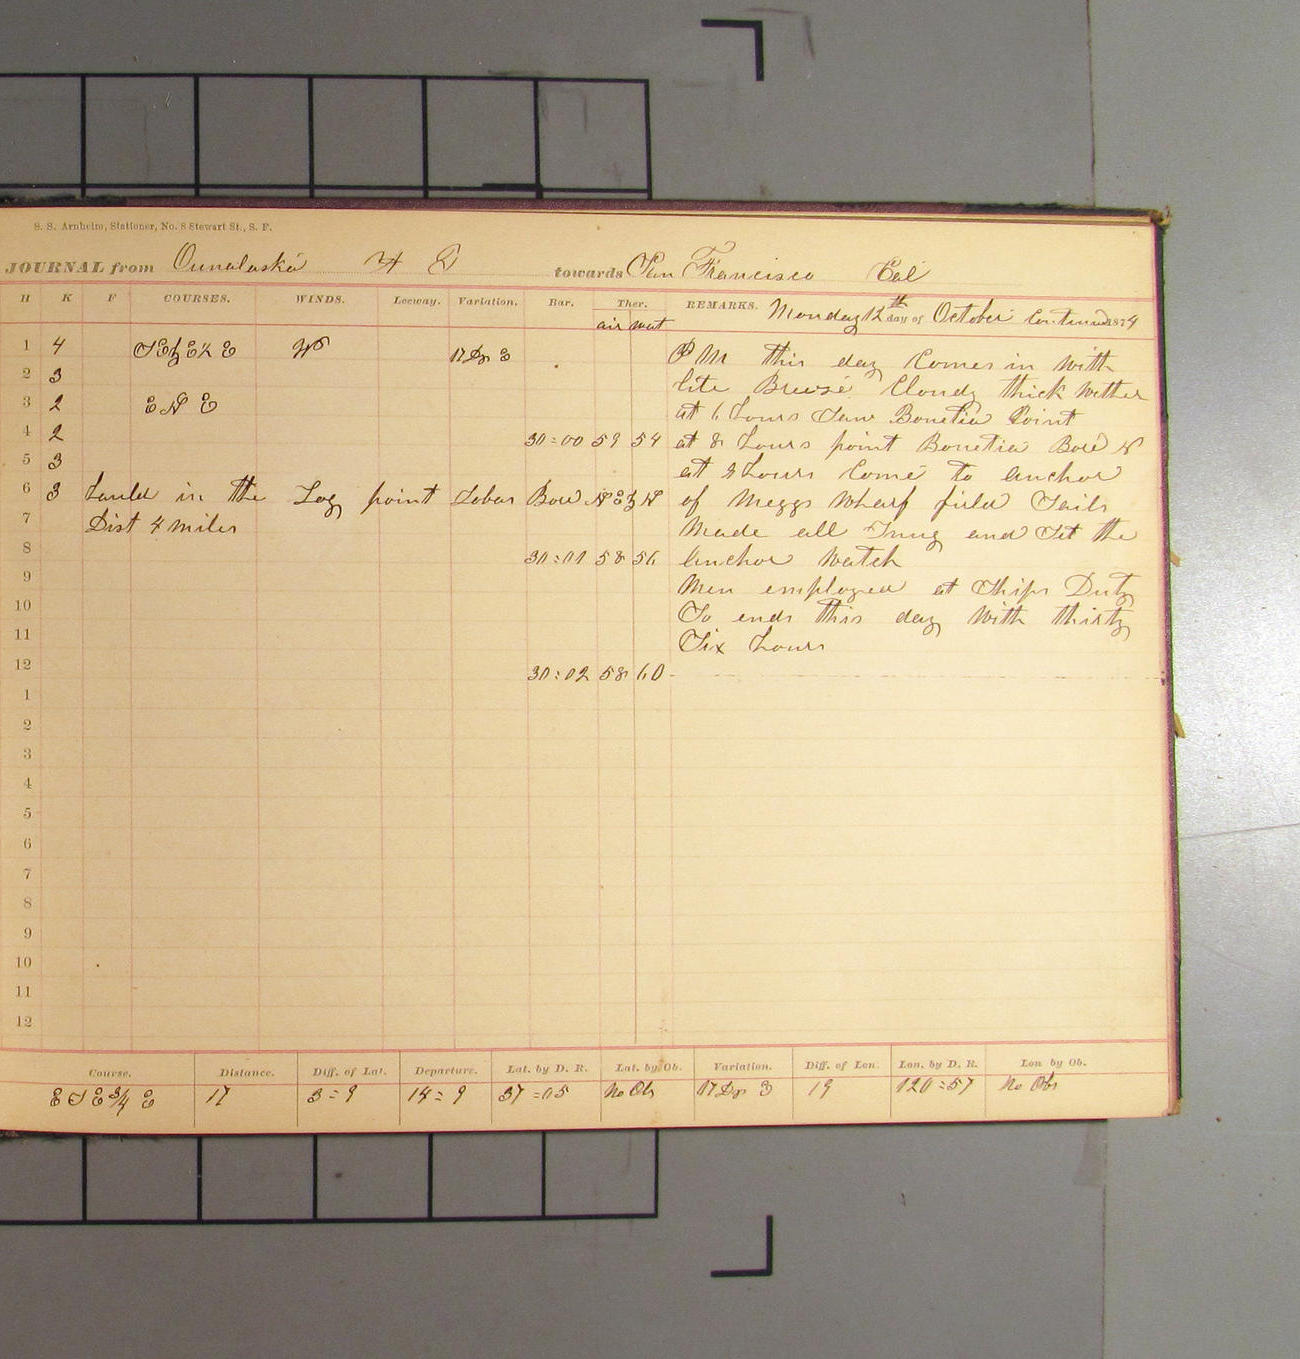 S. S. Arnheim, Stationer, No. 8 Stewart St., S. F.
JOURNAL from Ounalaska towards San Francisco Cal
H K F COURSES. WINDS. Leeway. Variation. Bar. Ther. REMARKS. Monday 12th day of October Continued 1874
air wat
1 4 17 Dg E PM this day Comes in with
2 3 lite Breese Cloudy thick wether
3 2 E N E at 6 hours Saw Bonetia Point
4 2 30=00 59 54 at 8 hours point Bonetia Bore N
5 3 at 9 hours Come to anchor
6 3 hauld in the Log point Lobos Bore N E by N of Meggs wharf furld Sails
7 Dist 4 miles Made all Snug and Set the
8 30:01 58 56 anchor watch
9 Men employed at Ships Duty
10 So ends this day with thirty
11 Six hours
12 30:02 58 60
1
2
3
4
5
6
7
8
9
10
11
12
Course. Distance. Diff. of Lat. Departure. Lat. by D. R. Lat. by Ob. Variation. Diff. of Lon. Lon. by D. R. Lon by Ob.
E S E 3/4 E 17 3=9 14=9 37=05 No Obs 17 Dg E 19 120=57 No Obs